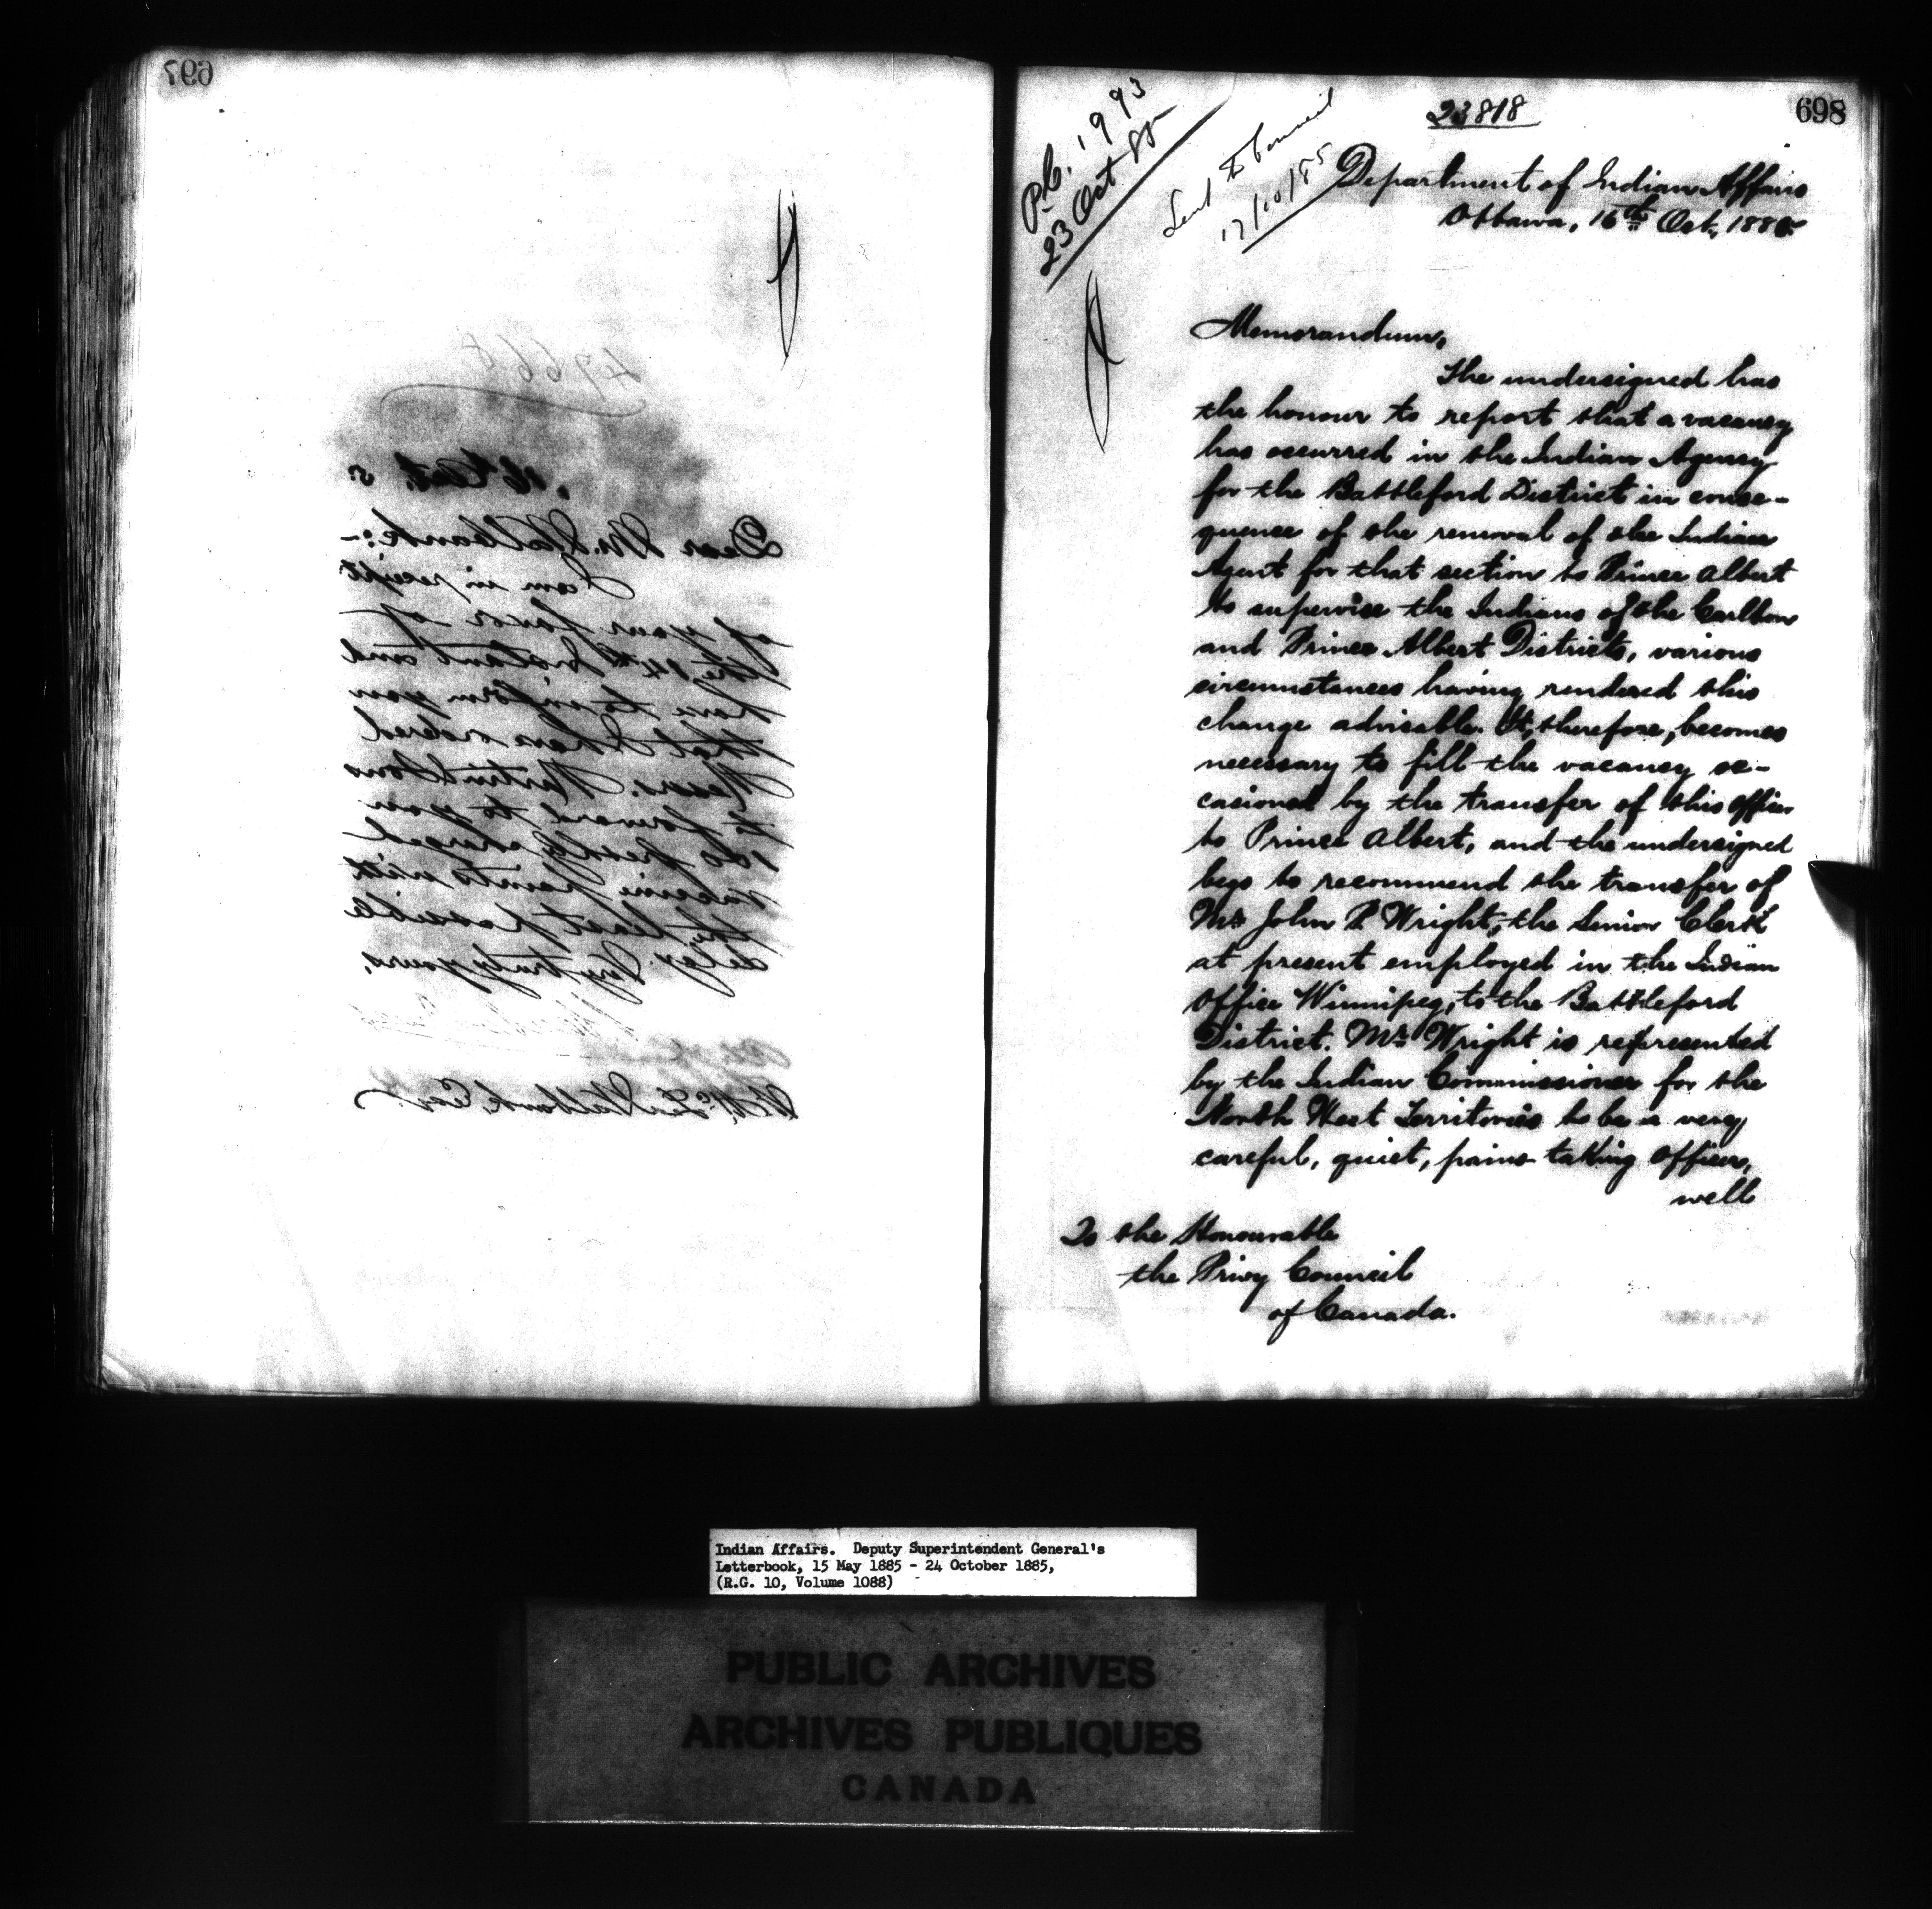 697
47668
16 Oct. 5.
Dear Mr.
I am in receipt
of your favor of
the 14th Instant and
have to inform you
that I have ordered
Messrs. Martin &Sons
to forward to you
100 freshly charged
vaccine points with
the least possible
delay. Very truly yours,
Esq.
698
23818
P.C. 1993
23 Oct. 85
Sent to Council
17/10/85
Department of Indian Affairs
Ottawa, 16th Oct, 1885
Memorandum,
The undersigned has
the honour to report that a vacancy
has occurred in the Indian Agency
for the Battleford District in conse-
quence of the removal of the Indian
Agent for that section to Prince Albert
to supervise the Indians of the Carlton
and Prince Albert Districts, various
circumstances having rendered this
change advisable. It, therefore, becomes
necessary to fill the vacancy oc-
casioned by the transfer of this officer
to Prince Albert, and the undersigned
begs to recommend the transfer of
Mr. John P. Wright, the Senior Clerk
at present employed in the Indian
Office Winnipeg, to the Battleford
District. Mr. Wright is represented
by the Indian Commissioner for the
North West Territories to be a very
careful, quiet, pains-taking officer,
well
To the Honourable
the Privy Council
of Canada.
Indian Affairs. Deputy Superintendent General's
Letterbook, 15 May 1885 - 24 October 1885,
(R.G. 10, Volume 1088)
PUBLIC ARCHIVES
ARCHIVES PUBLIQUES
CANADA